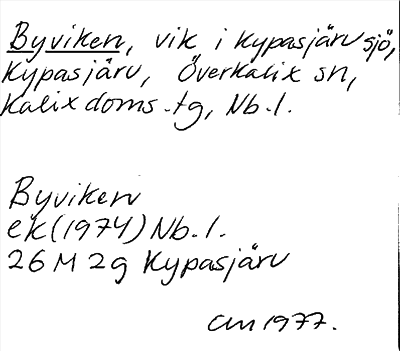 Byviken, vik i Kypasjärv sjö,
Kypasjärv, Överkalix sn,
Kalix doms.tg, Nb.l.
Byviken
ek (1974) Nb.l.
26 M 2g Kypasjärv
CM 1977.